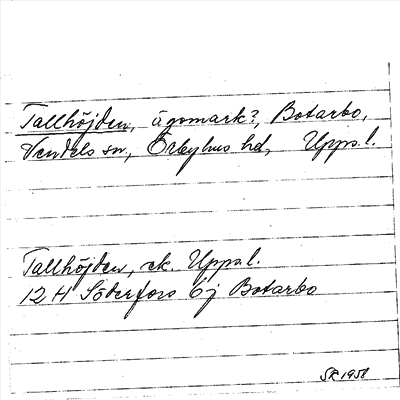 Tallhöjden, ägomark?, Botarbo,
Vendels sn, Örbyhus hd, Upps.l.
Tallhöjden, ek. Upps.l.
12 H Söderfors 6j Botarbo
SR 1958